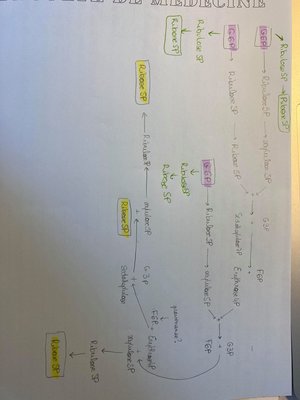 DE MEDECINE
Ribulose 5P → Ribose 5P
G6P → Ribulose 5P → xylulose 5P
G3P
F6P
Ribulose 5P
Ribose 5P
G6P → Ribulose 5P → Ribose 5P
Sedoheptulose 7P
Erythrose 4P
G3P
F6P
Ribulose 5P
Ribose 5P
G6P → Ribulose 5P → xylulose 5P
Ribose 5P
Ribulose 5P
xylulose 5P
Ribose 5P
G3P
F6P
Erythrose 4P
xylulose 5P
Ribulose 5P
Ribose 5P